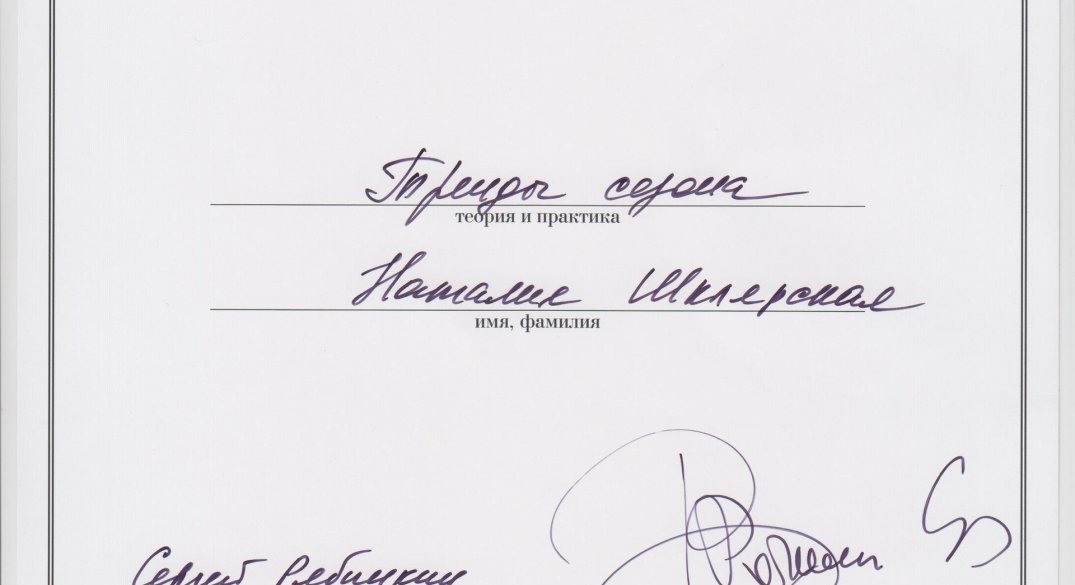 Тренды сезона
теория и практика
Наталия Шклярская
имя, фамилия
Сергей Рябинкин